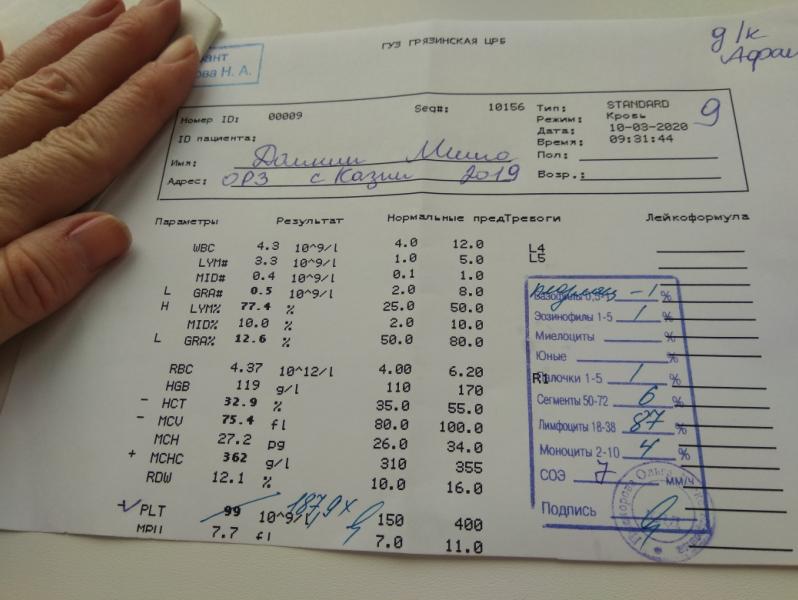 ГУЗ ГРЯЗИНСКАЯ ЦРБ
д/к
ова Н. А.
Номер ID: 00009 Seq#: 10156 Тип: STANDARD 9
Режим: Кровь
ID пациента: Дата: 10-03-2020
Время: 09:31:44
Имя: Пол:
Адрес: ОРЗ с 2019 Возр.:
Параметры Результат Нормальные предТревоги Лейкоформула
WBC 4.3 10^9/l 4.0 12.0 L4
LYM# 3.3 10^9/l 1.0 5.0 L5
MID# 0.4 10^9/l 0.1 1.0
L GRA# 0.5 10^9/l 2.0 8.0
H LYM% 77.4 % 25.0 50.0
MID% 10.0 % 2.0 10.0
L GRA% 12.6 % 50.0 80.0
RBC 4.37 10^12/l 4.00 6.20 R1
HGB 119 g/l 110 170
- HCT 32.9 % 35.0 55.0
- MCV 75.4 fl 80.0 100.0
MCH 27.2 pg 26.0 34.0
+ MCHC 362 g/l 310 355
RDW 12.1 % 10.0 16.0
PLT 99 10^9/l 187,9 150 400
MPV 7.7 fl 7.0 11.0
- 1 %
Эозинофилы 1-5 1 %
Миелоциты %
Юные %
Палочки 1-5 1 %
Сегменты 50-72 6 %
Лимфоциты 18-38 87 %
Моноциты 2-10 4 %
СОЭ 7 мм/ч
Подпись